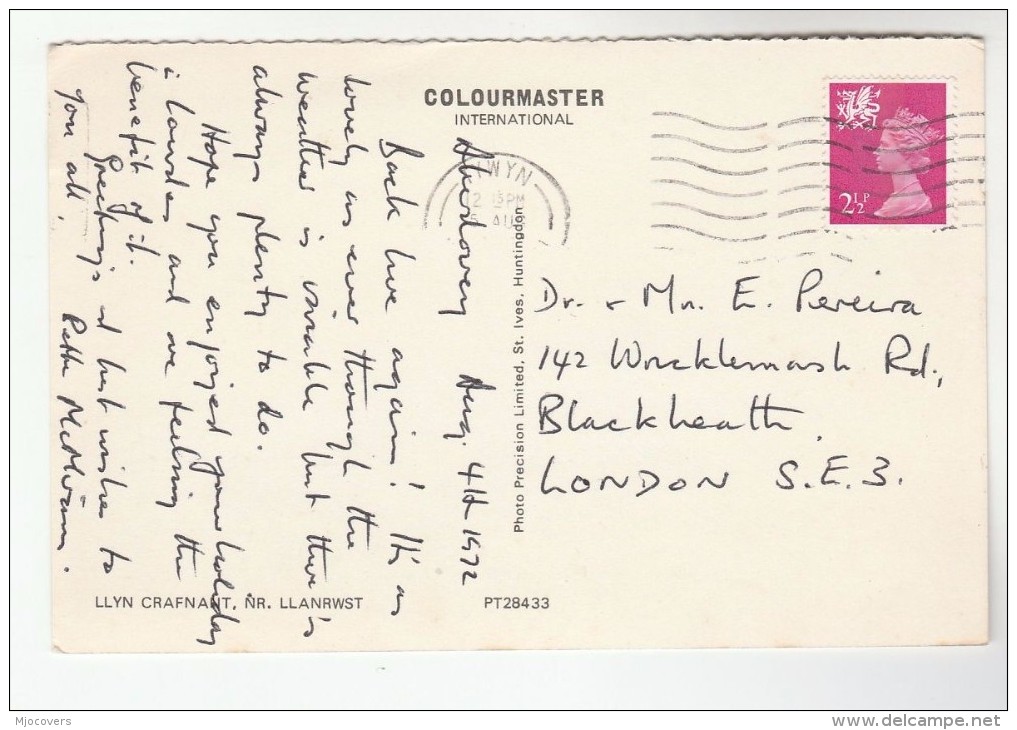 COLOURMASTER
INTERNATIONAL
Aberdovey Aug. 4th 1972
Back here again! It's as
lovely as ever though the
weather is variable but there is
always plenty to do.
Hope you enjoyed your holiday
in Lourdes and are feeling the
benefit of it.
Greetings & best wishes to
you all.
LWYN
12 15 PM
5 AU
2½P
Photo Precision Limited, St. Ives, Huntingdon
Dr. & Mrs. E. Pereira
142 Wricklemarsh Rd,
Blackheath,
LONDON S.E.3.
LLYN CRAFNANT, NR. LLANRWST
PT28433
Mjocovers
www.delcampe.net